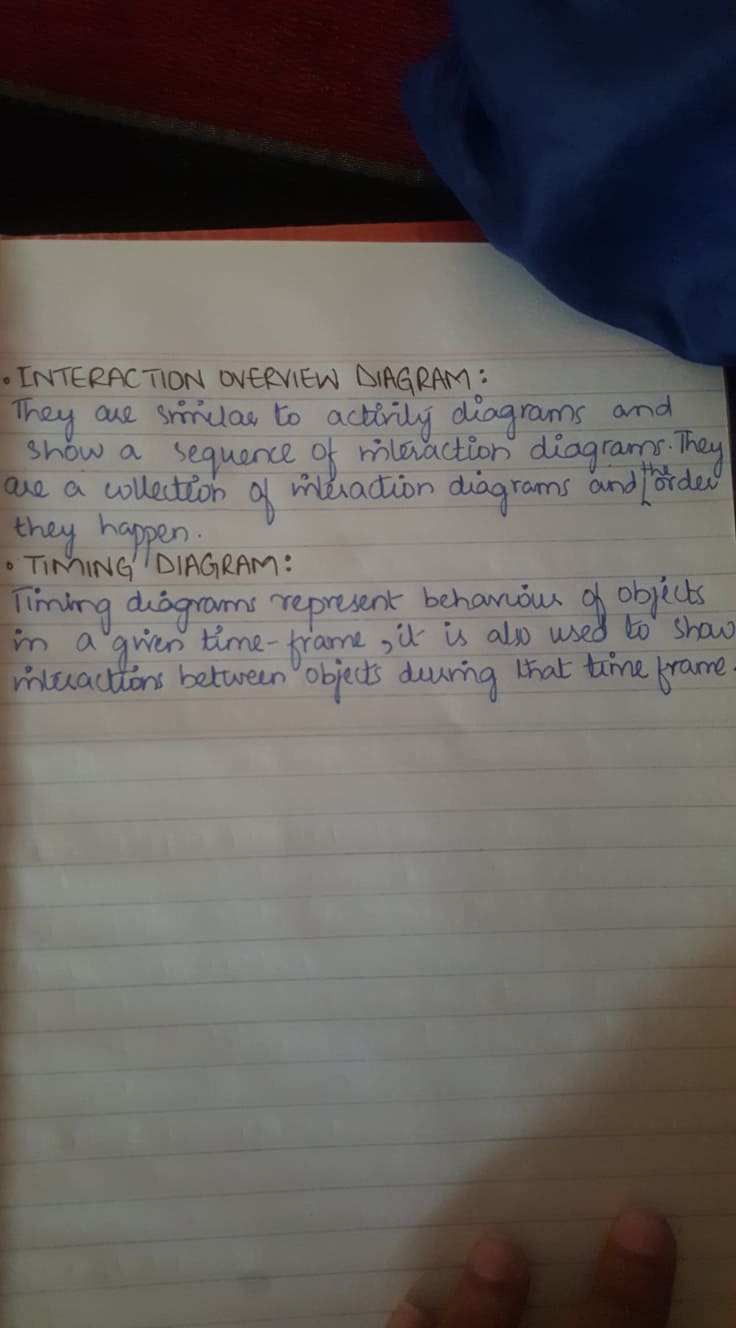 • INTERACTION OVERVIEW DIAGRAM:
They are similar to activity diagrams and
show a sequence of interaction diagrams. They
are a collection of interaction diagrams and the order
they happen.
• TIMING DIAGRAM:
Timing diagrams represent behaviour of objects
in a given time-frame, it is also used to show
interactions between objects during that time frame.